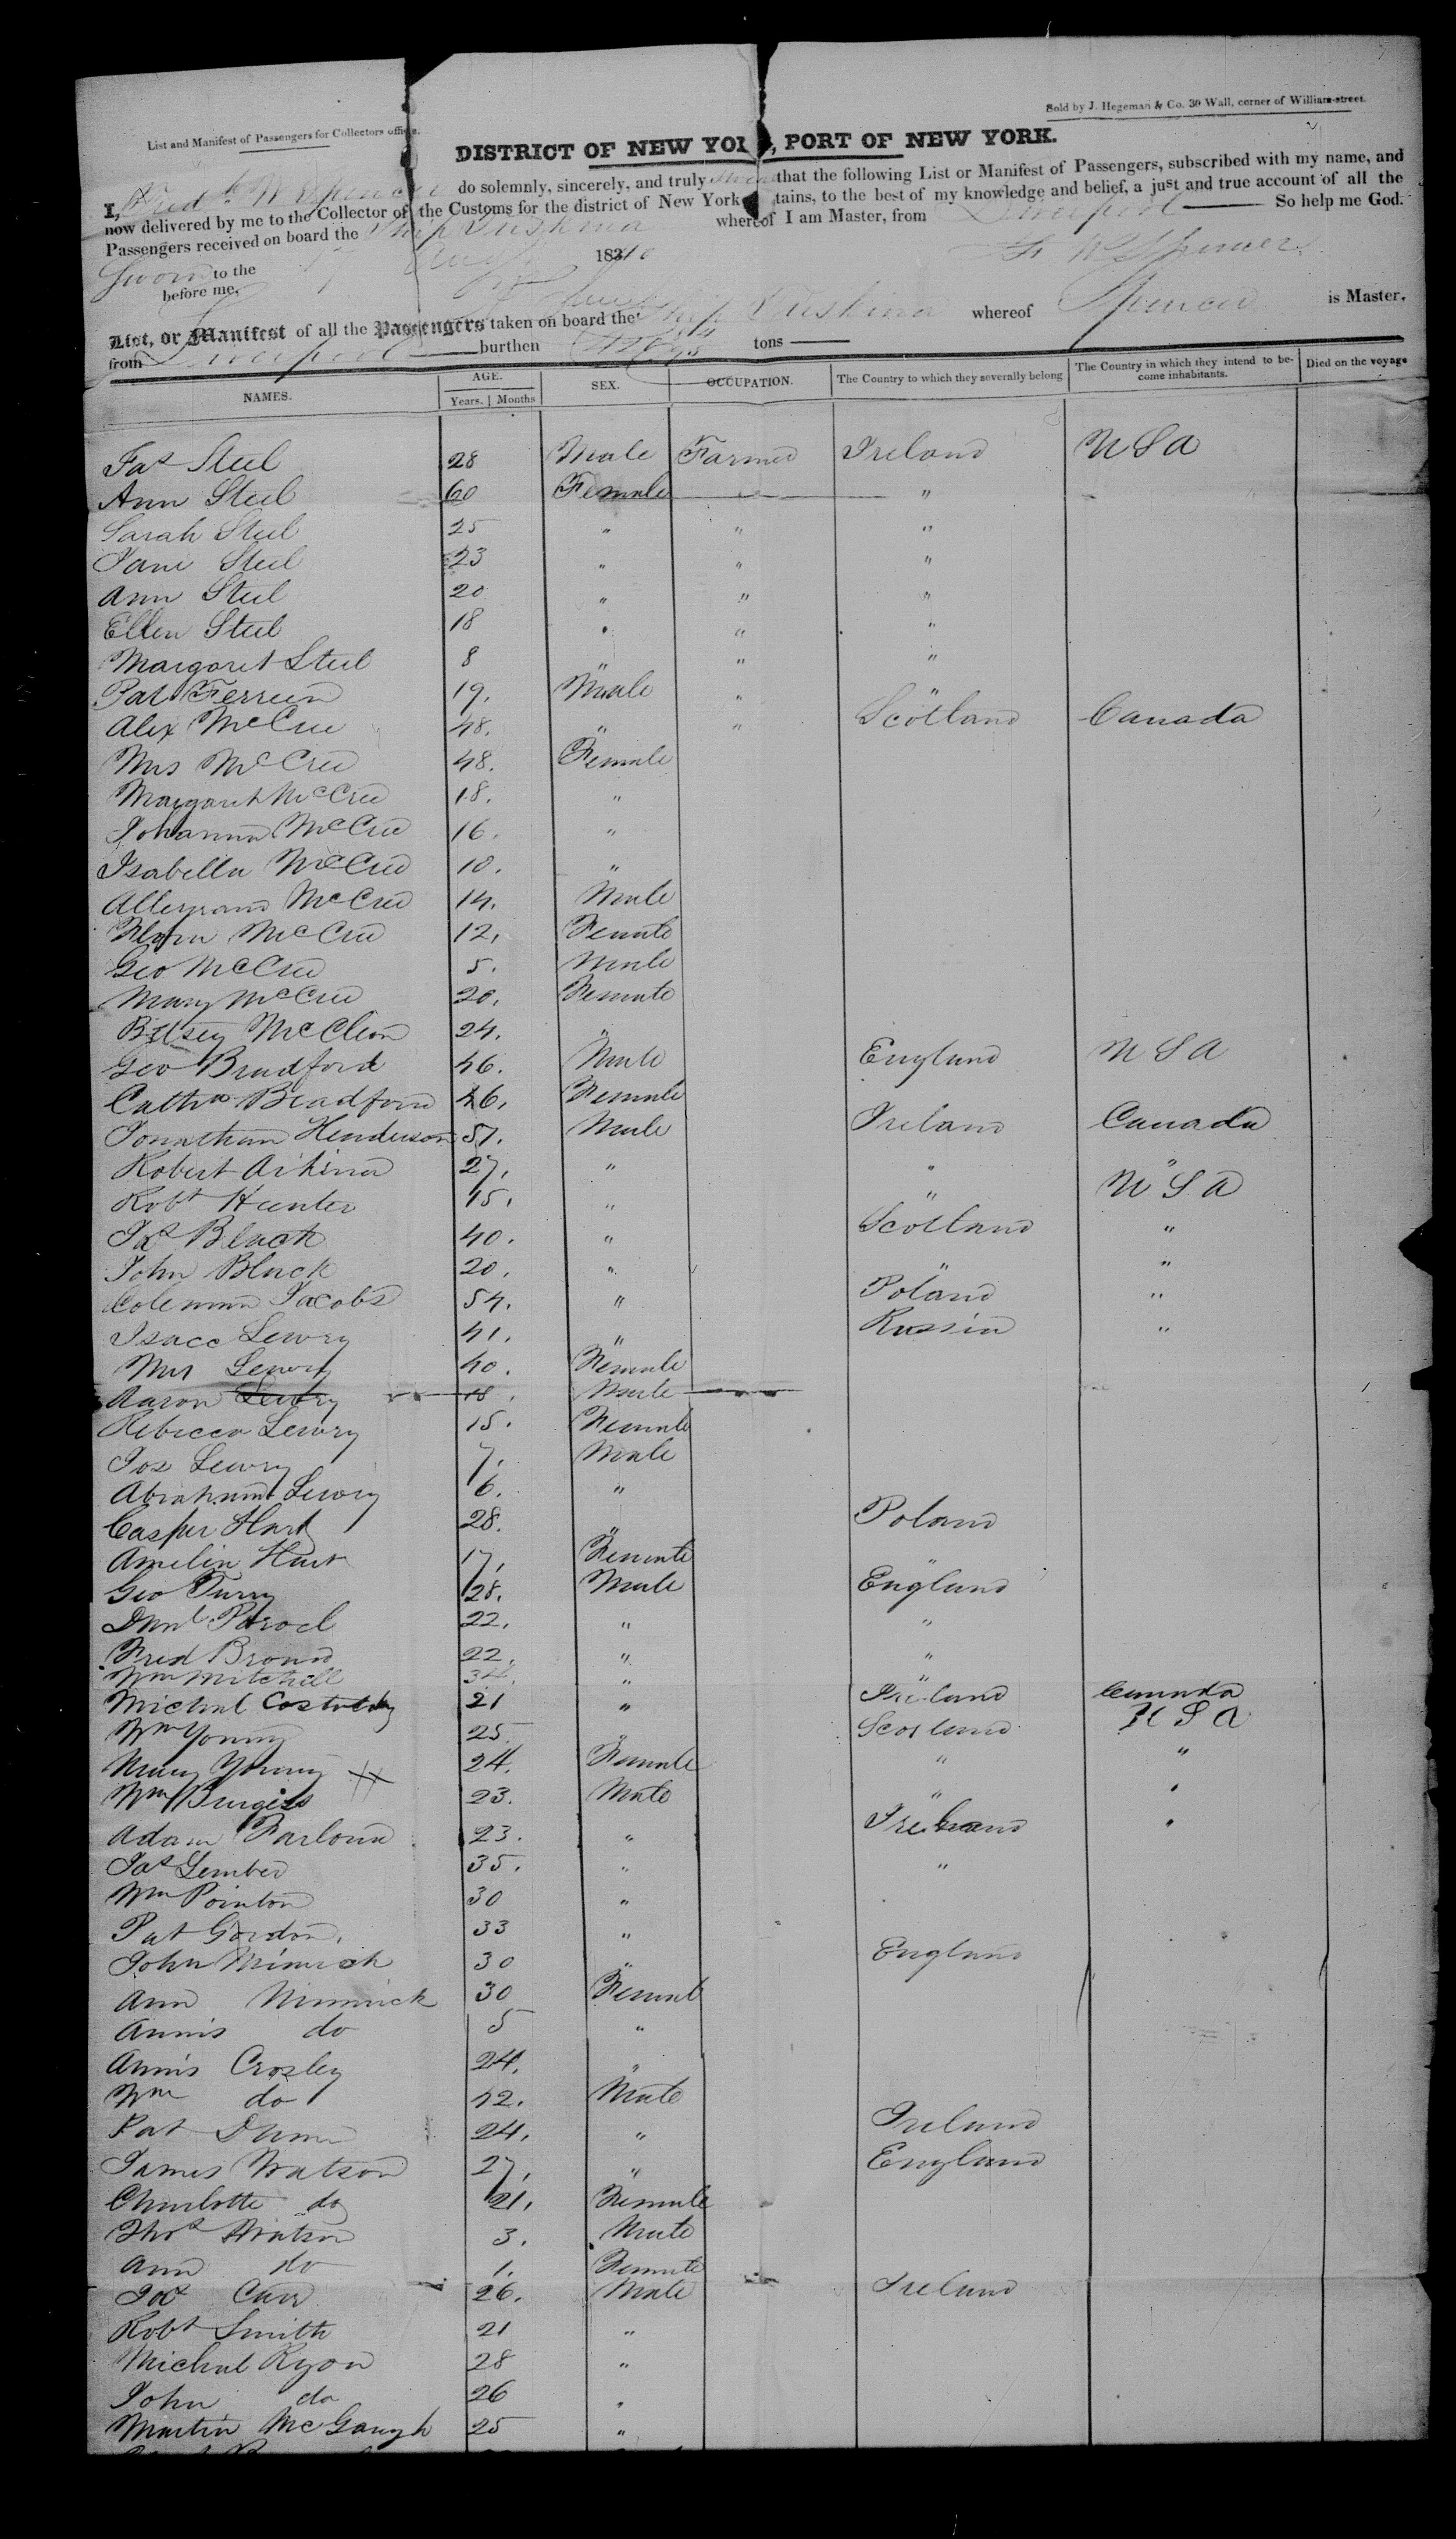 Sold by J. Hegeman & Co. 30 Wall, corner of William-street.
List and Manifest of Passengers for Collectors office.
DISTRICT OF NEW YOR , PORT OF NEW YORK.
I, Fredk W Spencer do solemnly, sincerely, and truly that the following List or Manifest of Passengers, subscribed with my name, and
now delivered by me to the Collector of the Customs for the district of New York tains, to the best of my knowledge and belief, a just and true account of all the
Passengers received on board the Ship whereof I am Master, from Liverpool So help me God.
Sworn to the 183 F W Spencer
before me,
List, or Manifest of all the Passengers taken on board the Ship whereof Spencer is Master,
from Liverpool burthen tons
NAMES. AGE. SEX. OCCUPATION. The Country to which they severally belong The Country in which they intend to be- Died on the voyage
Years. Months come inhabitants.
Jas Steel 28 Male Farmer Ireland U S A
Ann Steel 60 Female "
Sarah Steel 25 " " "
Jane Steel 23 " " "
Ann Steel 20 " " "
Ellen Steel 18 " " "
Margaret Steel 8 " " "
Pat 19. Male " "
Alex McCree 48. " " Scotland Canada
Mrs McCree 48. Female
Margaret McCree 18. "
Johanna McCree 16. "
Isabella McCree 10. "
McCree 14. Male
McCree 12. Female
Geo McCree 5. Male
Mary McCree 20. Female
Betsey 24. "
Geo Bradford 46. Male England U S A
Bradford 46. Female
Jonathan Henderson 51. Male Ireland Canada
Robert 27. " " "
Robt Hunter 15. " " U S A
Jas Black 40. " Scotland "
John Black 20. " " "
Coleman Jacobs 54. " Poland "
Isacc Lewry 41. " Russia "
Mrs Lewry 40. Female
Aaron Lewry 18. Male
Rebecca Lewry 15. Female
Jos Lewry 7. Male
Abraham Lewry 6. "
Casper Hart 28. " Poland
Amelia Hart 17. Female "
Geo 28. Male England
Danl 22. " "
Fred Brown 22. " "
Wm Mitchell 34. " "
Michal 21 " Ireland Canada
Wm Young 25. " Scotland U S A
Mary Young 24. Female " "
Wm Burgess 23. Male " "
Adam 23. " Ireland "
Jas 35. " "
Wm Pointon 30 "
Pat Gordon. 33 "
John 30 " England
Ann 30 Female
Annis do 5 "
Annis Crosley 24. "
Wm do 12. Male
Pat 24. " Ireland
James Watson 27. " England
Charlotte do 21. Female
Thos Watson 3. Male
Ann do 1. Female
Carr 26. Male Ireland
Robt Smith 21 "
Michal Ryon 28 "
John do 26 "
Martin McGaugh 25 "